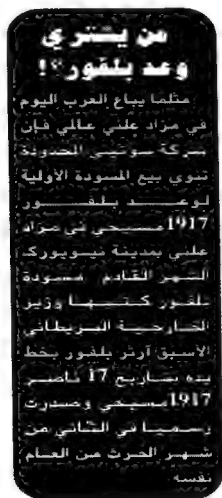 من يشتري
وعد بلفور؟!
مثلما يباع العرب اليوم
في مزاد علني عالمي فإن
شركة سوثبي المحدودة
تنوي بيع المسودة الأولية
لوعد بلفور
1917 مسيحي في مزاد
علني بمدينة نيويورك
الشهر القادم مسودة
بلفور كتبها وزير
الخارجية البريطاني
الأسبق آرثر بلفور بخط
يده بتاريخ 17 ناصر
1917 مسيحي وصدرت
رسميا في الثاني من
شهر الحرث من العام
نفسه